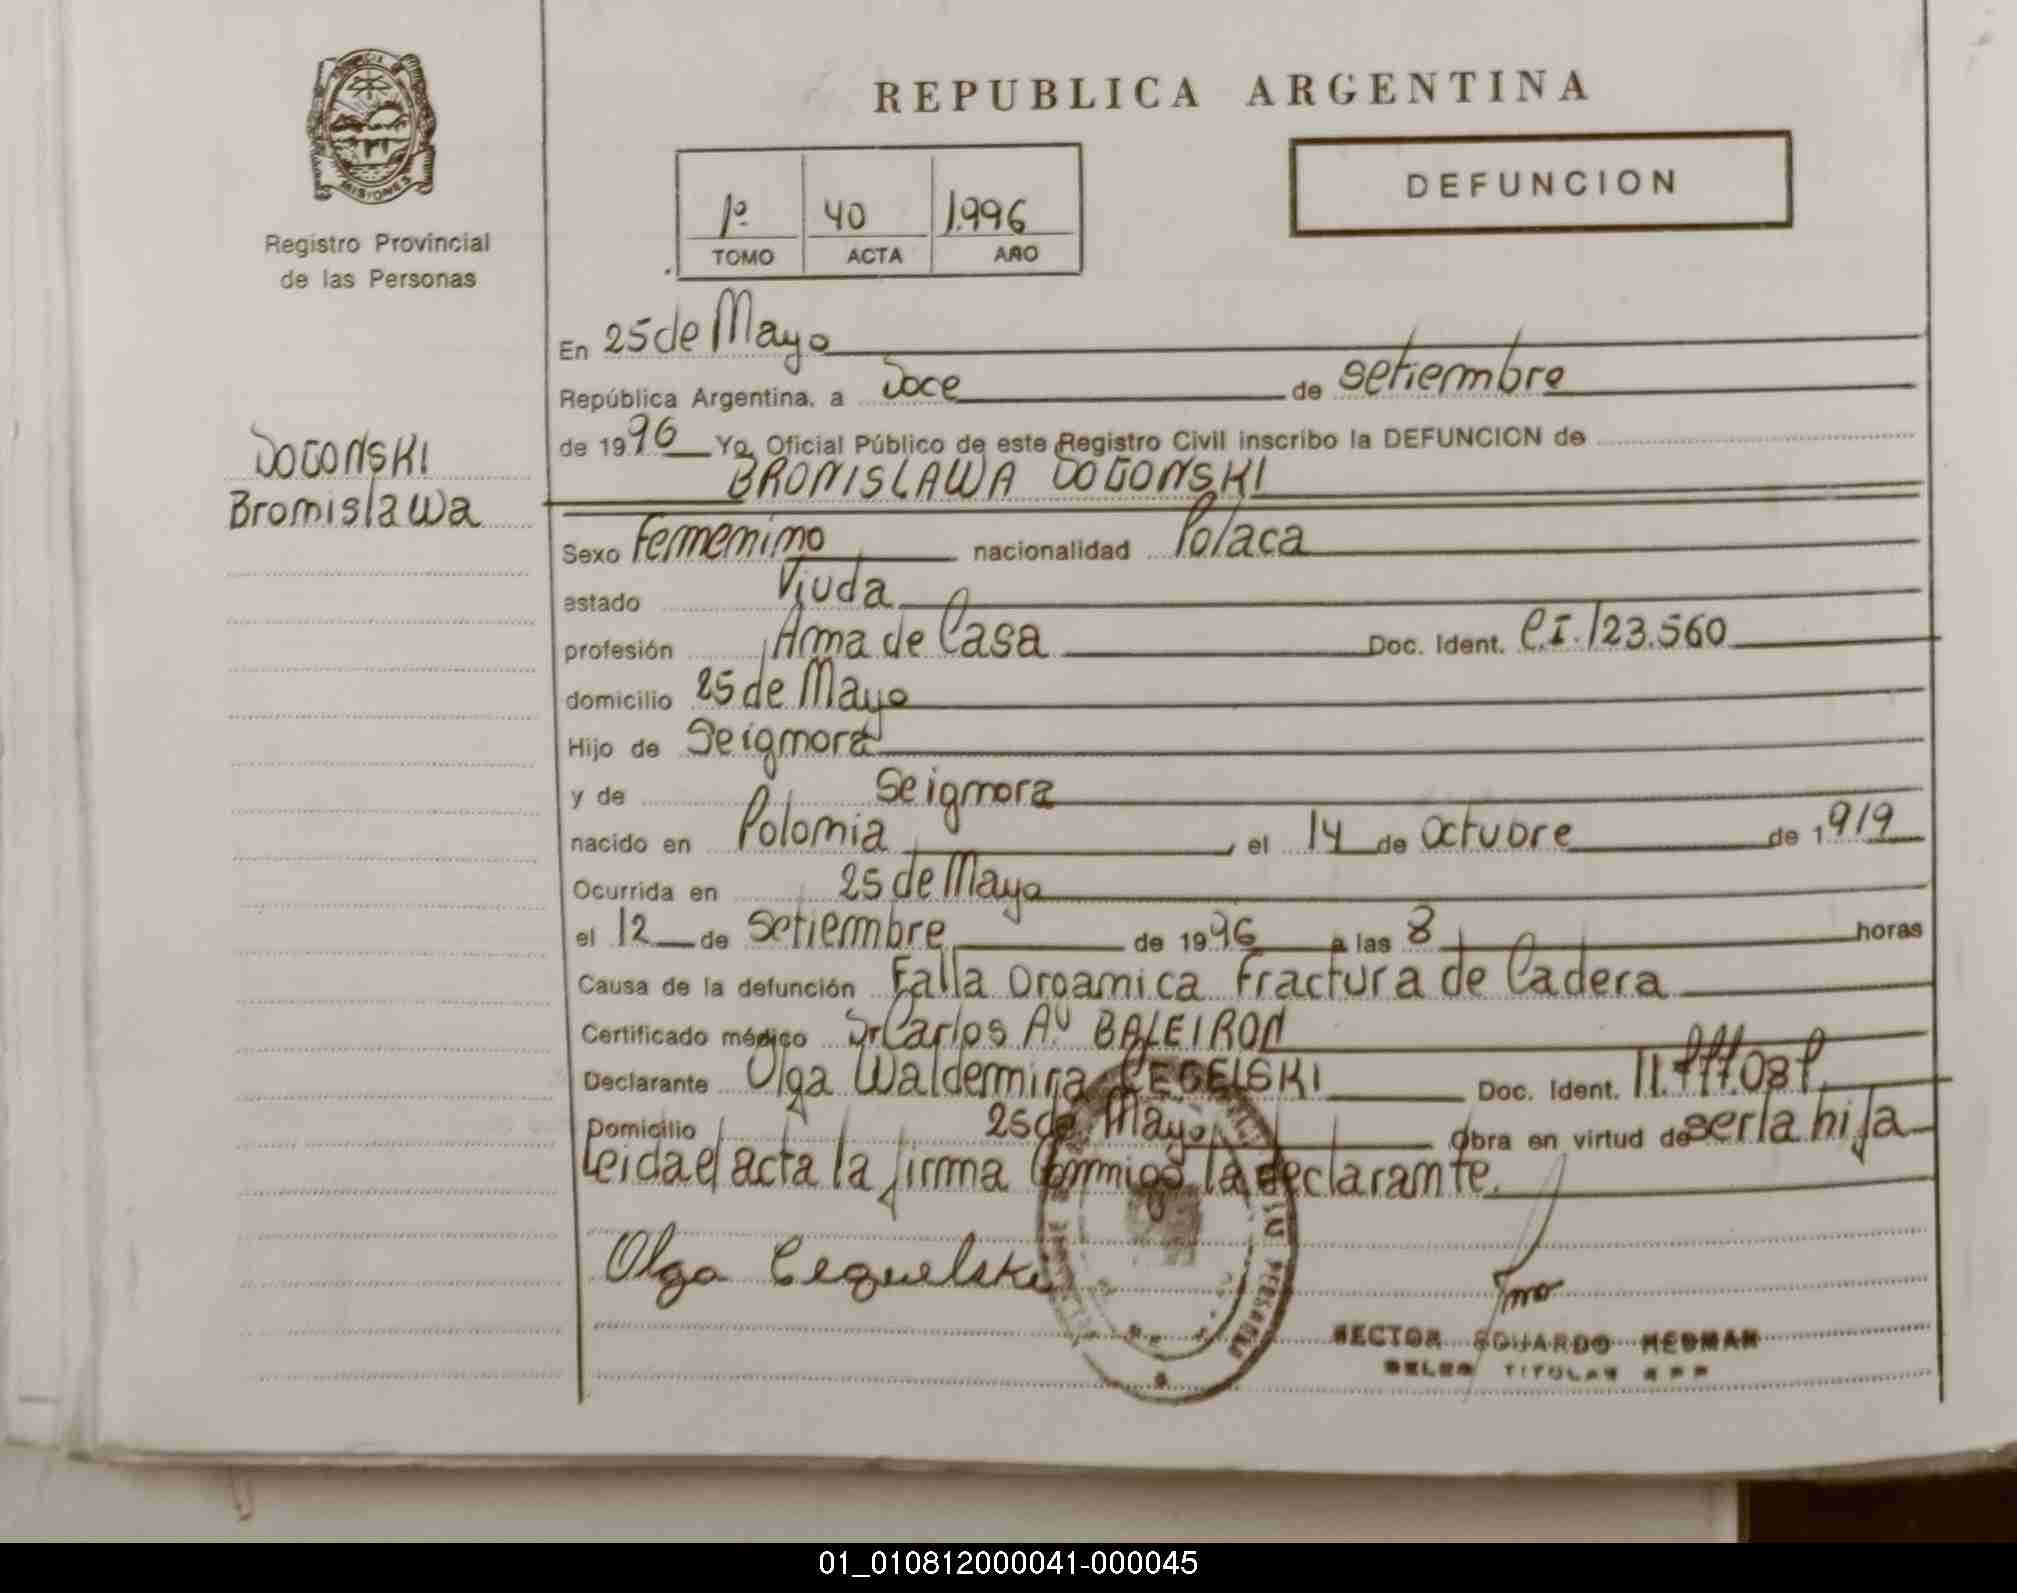 PROVINCIA DE
MISIONES
Registro Provincial
de las Personas
REPUBLICA ARGENTINA
DEFUNCION
1º 40 1.996
TOMO ACTA AÑO
En 25 de Mayo
República Argentina, a Doce de setiembre
de 1996 Yo, Oficial Público de este Registro Civil inscribo la DEFUNCION de
DOGONSKI
Bronislawa
BRONISLAWA DOGONSKI
Sexo Femenino nacionalidad Polaca
estado Viuda
profesión Ama de Casa Doc. Ident. C.I. 123.560
domicilio 25 de Mayo
Hijo de Se ignora
y de Se ignora
nacido en Polonia el 14 de Octubre de 1919
Ocurrida en 25 de Mayo
el 12 de setiembre de 1996 a las 8 horas
Causa de la defunción Falla Organica Fractura de Cadera
Certificado médico Dr Carlos A. BALEIRON
Declarante Olga Waldemira CEGELSKI Doc. Ident.
Domicilio 25 de Mayo Obra en virtud de ser la hija
Leida el acta la firma Conmigo la declarante.
Olga Ceguelski
HECTOR EDUARDO HEDMAN
DELEG TITULAR R P P
01_010812000041-000045